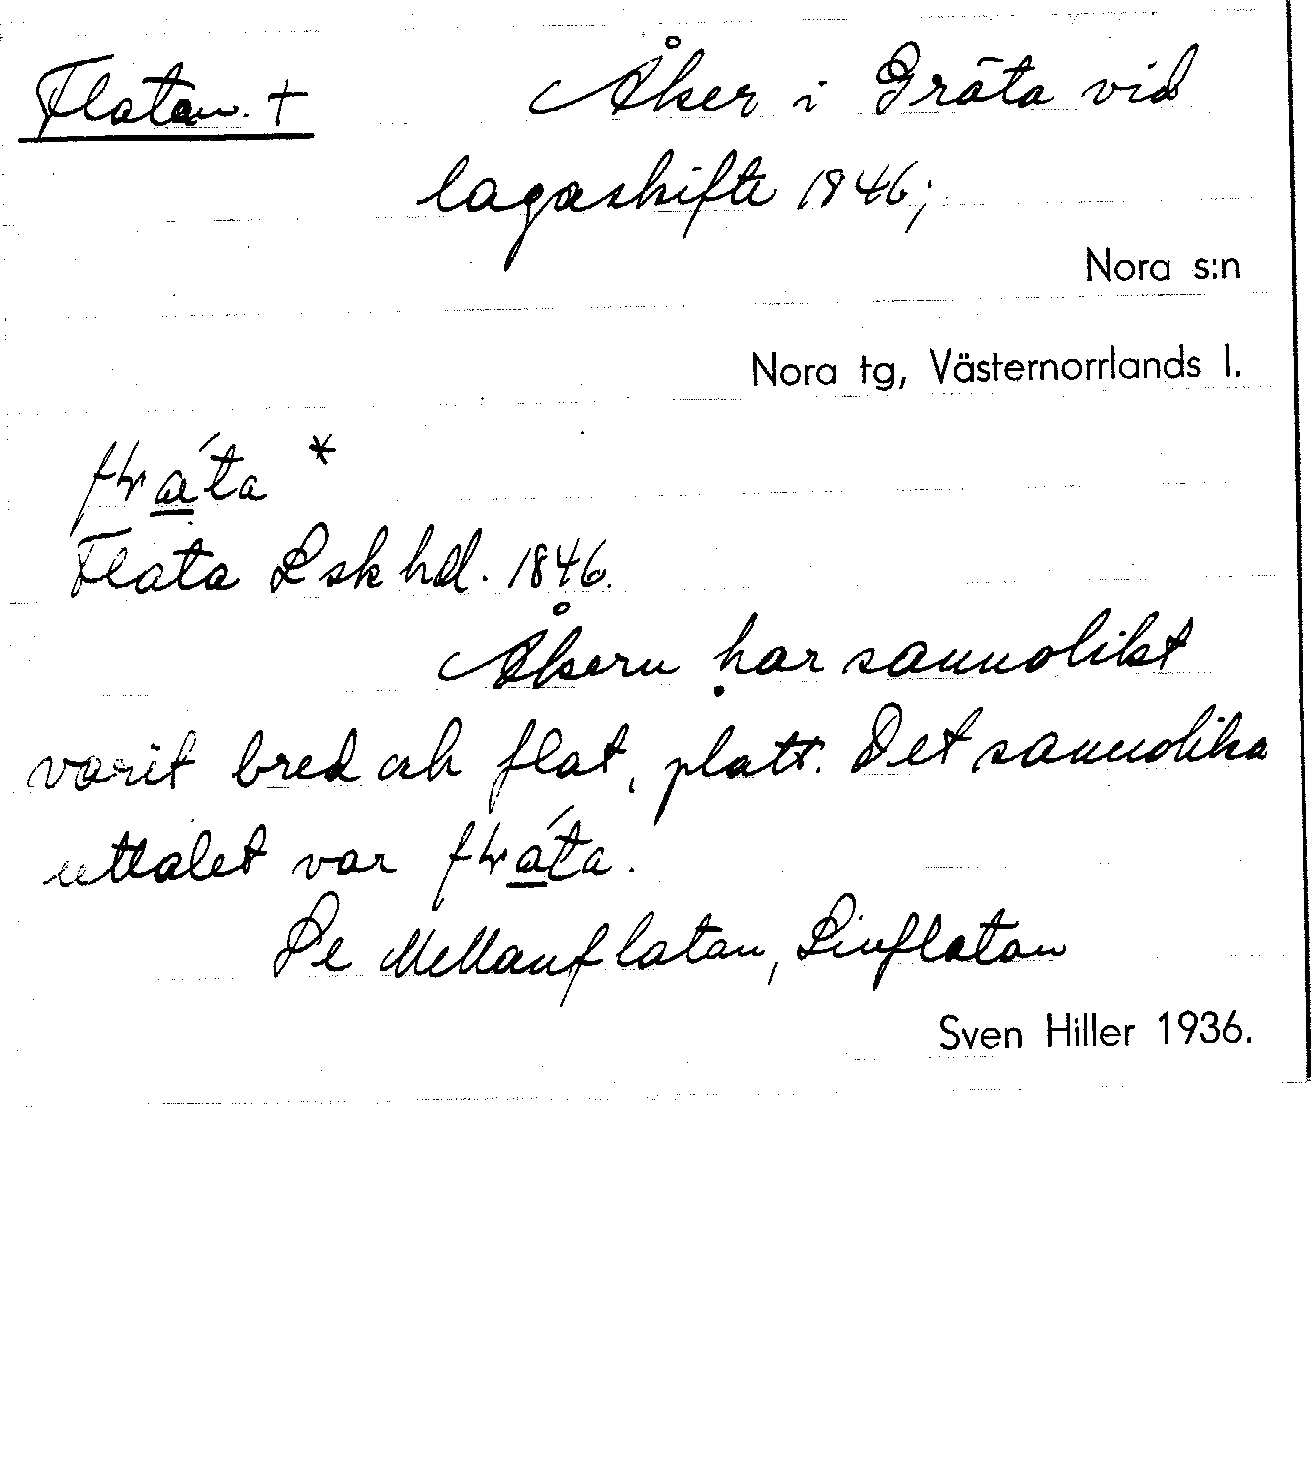 Flatan. +
Åker i Gräta vid
lagaskifte 1846;
Nora s:n
Nora tg, Västernorrlands l.
*
Flata Lskhdl. 1846.
Åkern har sannolikt
varit bred och flat, platt. Det sannolika
uttalet var
Se Mellanflatan, Linflatan
Sven Hiller 1936.